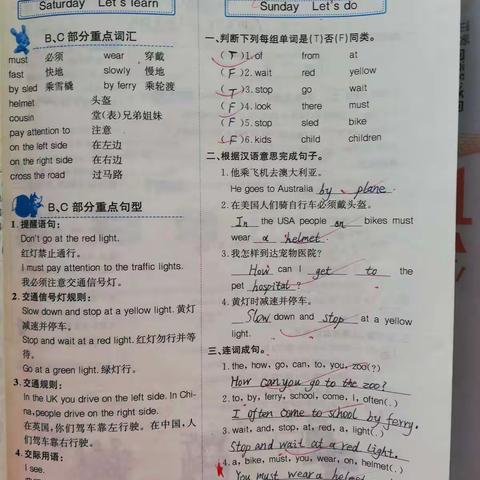 Saturday Let's learn
B、C 部分重点词汇
must 必须 wear 穿戴
fast 快地 slowly 慢地
by sled 乘雪橇 by ferry 乘轮渡
helmet 头盔
cousin 堂(表)兄弟姐妹
pay attention to 注意
on the left side 在左边
on the right side 在右边
cross the road 过马路
B、C 部分重点句型
1. 提醒语句:
Don't go at the red light.
红灯禁止通行。
I must pay attention to the traffic lights.
我必须注意交通信号灯。
2. 交通信号灯规则:
Slow down and stop at a yellow light. 黄灯
减速并停车。
Stop and wait at a red light. 红灯勿行并等
待。
Go at a green light. 绿灯行。
3. 交通规则:
In the UK you drive on the left side. In Chi-
na, people drive on the right side.
在英国,你们驾车靠左行驶。在中国,人
们驾车靠右行驶。
4. 交际用语:
I see.
Sunday Let's do
一、判断下列每组单词是(T)否(F)同类。
(T)1. of from at
(F)2. wait red yellow
(T)3. stop go wait
(F)4. look there must
(F)5. stop sled bike
(F)6. kids child children
二、根据汉语意思完成句子。
1. 他乘飞机去澳大利亚。
He goes to Australia by plane.
2. 在美国人们骑自行车必须戴头盔。
In the USA people on bikes must
wear a helmet.
3. 我怎样到达宠物医院?
How can I get to the
pet hospital?
4. 黄灯时减速并停车。
Slow down and stop at a yellow
light.
三、连词成句。
1. the, how, go, can, to, you, zoo(?)
How can you go to the zoo?
2. to, by, ferry, school, come, I, often(.)
I often come to school by ferry.
3. wait, and, stop, at, red, a, light(.)
Stop and wait at a red light.
4. a, bike, must, you, wear, on, helmet(.)
You must wear a helmet